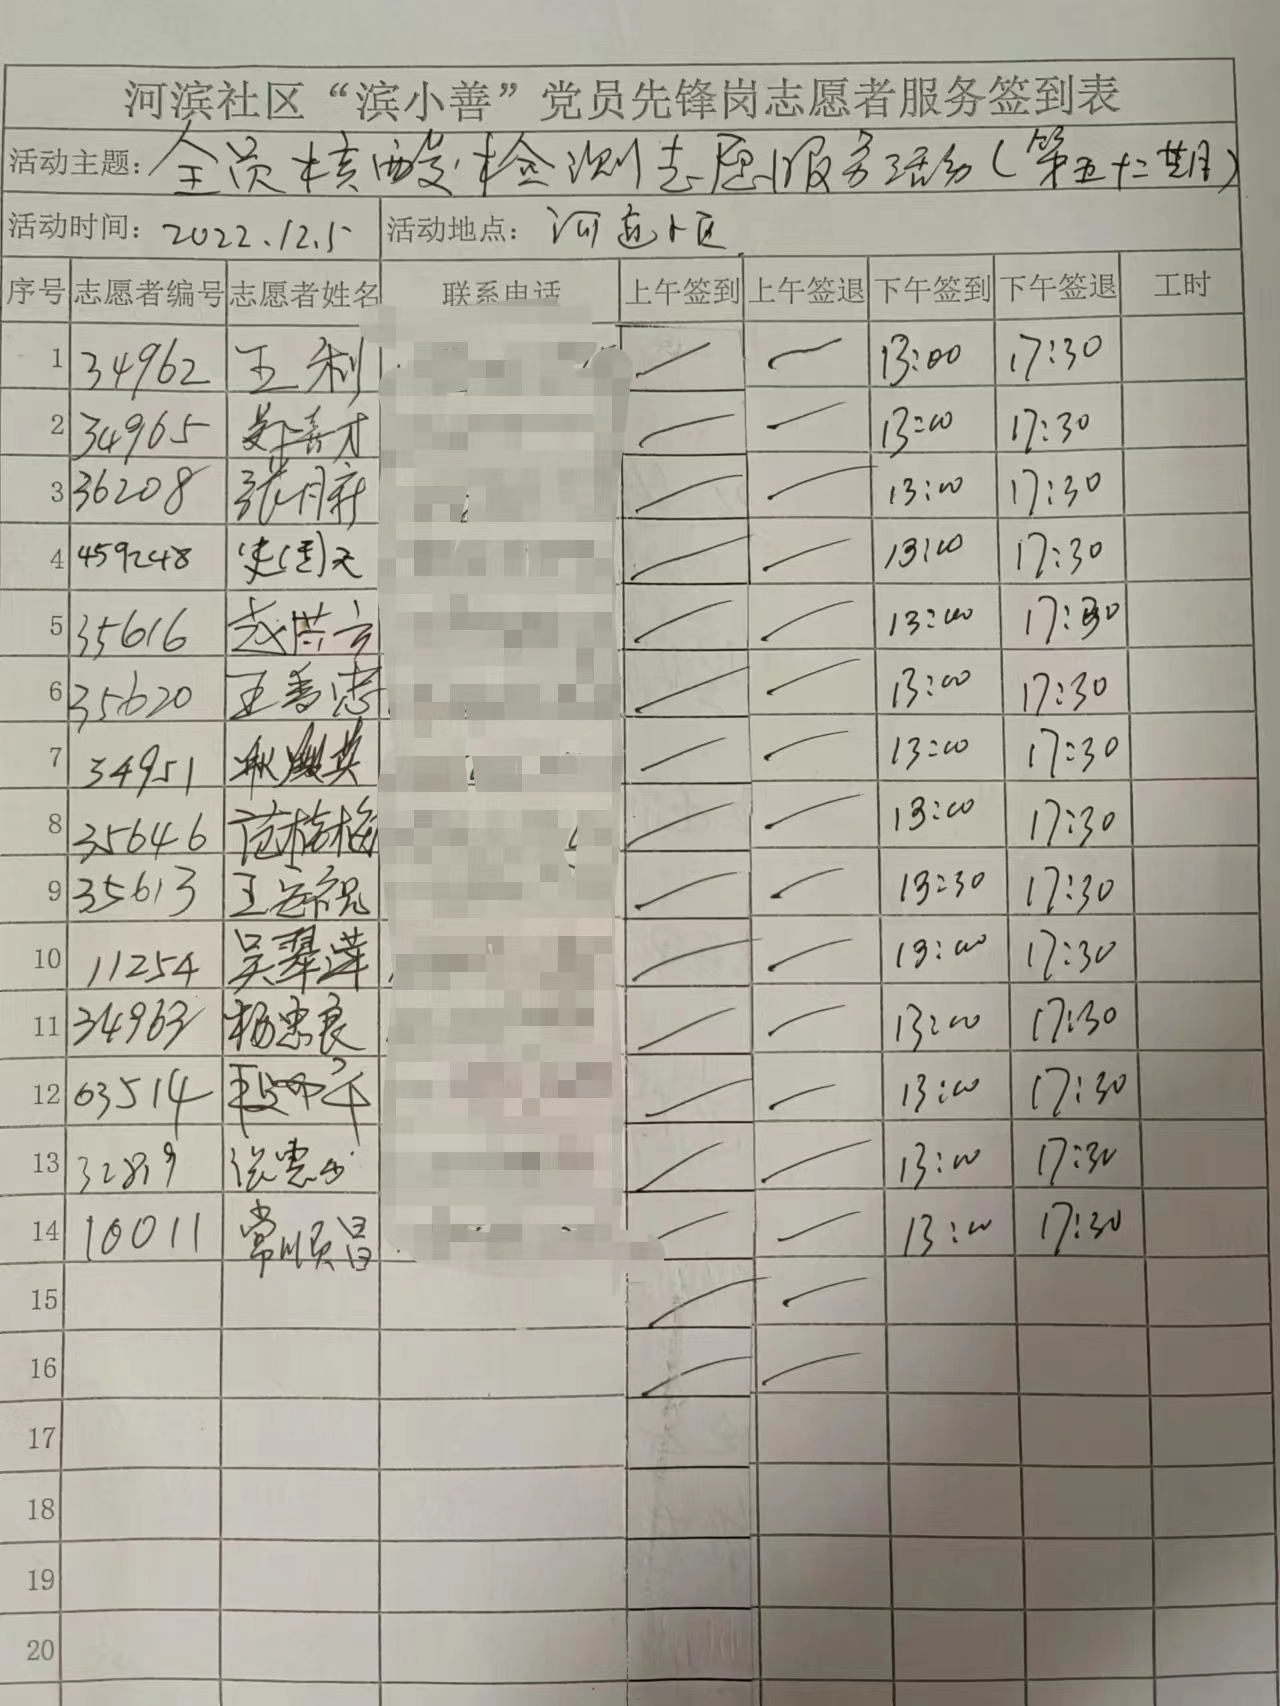 河滨社区“滨小善”党员先锋岗志愿者服务签到表
活动主题：全员核酸检测志愿服务活动（第五十二期）
活动时间：2022.12.5 活动地点：河运小区
序号 志愿者编号 志愿者姓名 联系电话 上午签到 上午签退 下午签到 下午签退 工时
1 34962 王利 13:00 17:30
2 34965 13:00 17:30
3 36208 张月新 13:00 17:30
4 459248 史国天 13:00 17:30
5 35616 赵芸方 13:00 17:30
6 35620 王秀忠 13:00 17:30
7 34951 13:00 17:30
8 35646 范梅梅 13:00 17:30
9 35613 王运祝 13:30 17:30
10 11254 吴翠莲 13:00 17:30
11 34963 杨忠良 13:00 17:30
12 03514 13:00 17:30
13 32819 13:00 17:30
14 10011 常顺昌 13:00 17:30
15
16
17
18
19
20